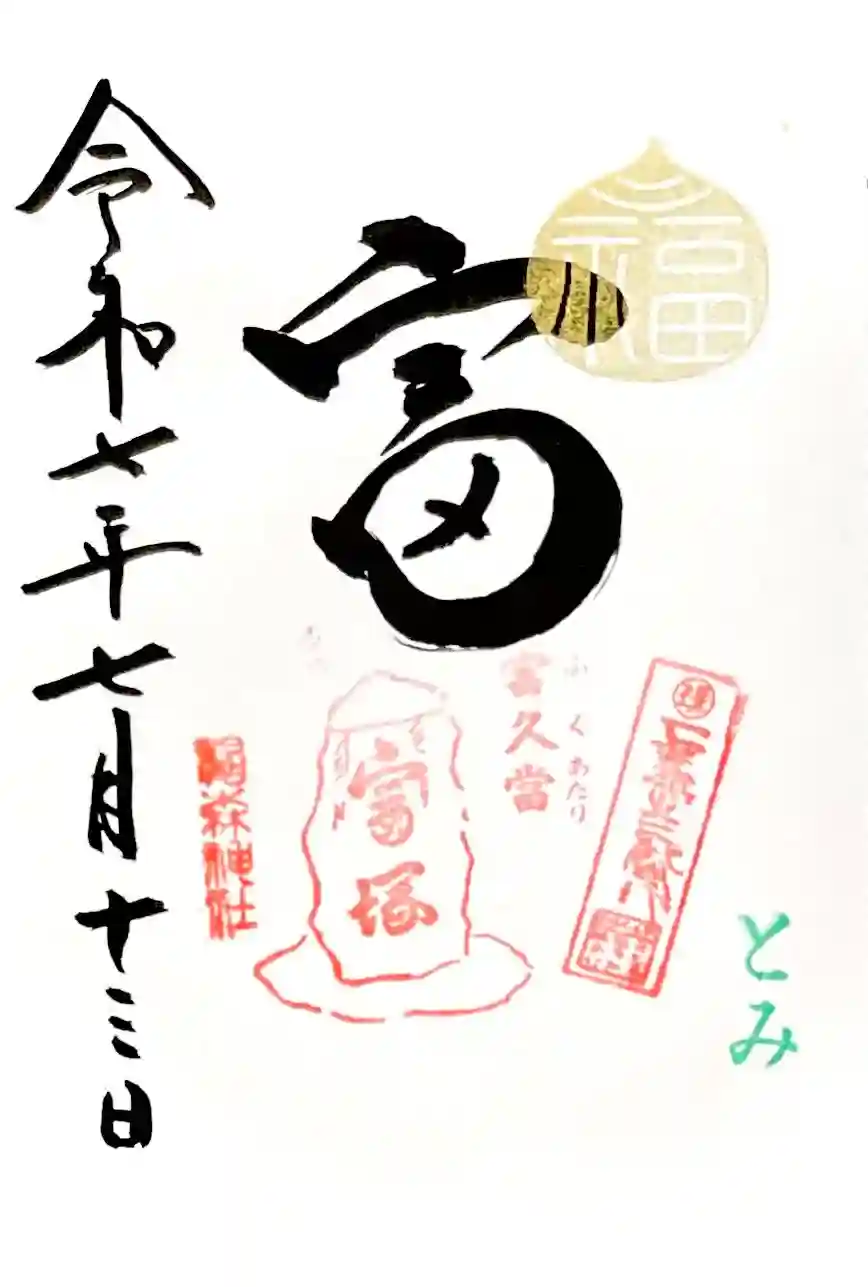 福
富
とみ
富久當
ふくあたり
富塚
椙森神社
令和七年七月十三日